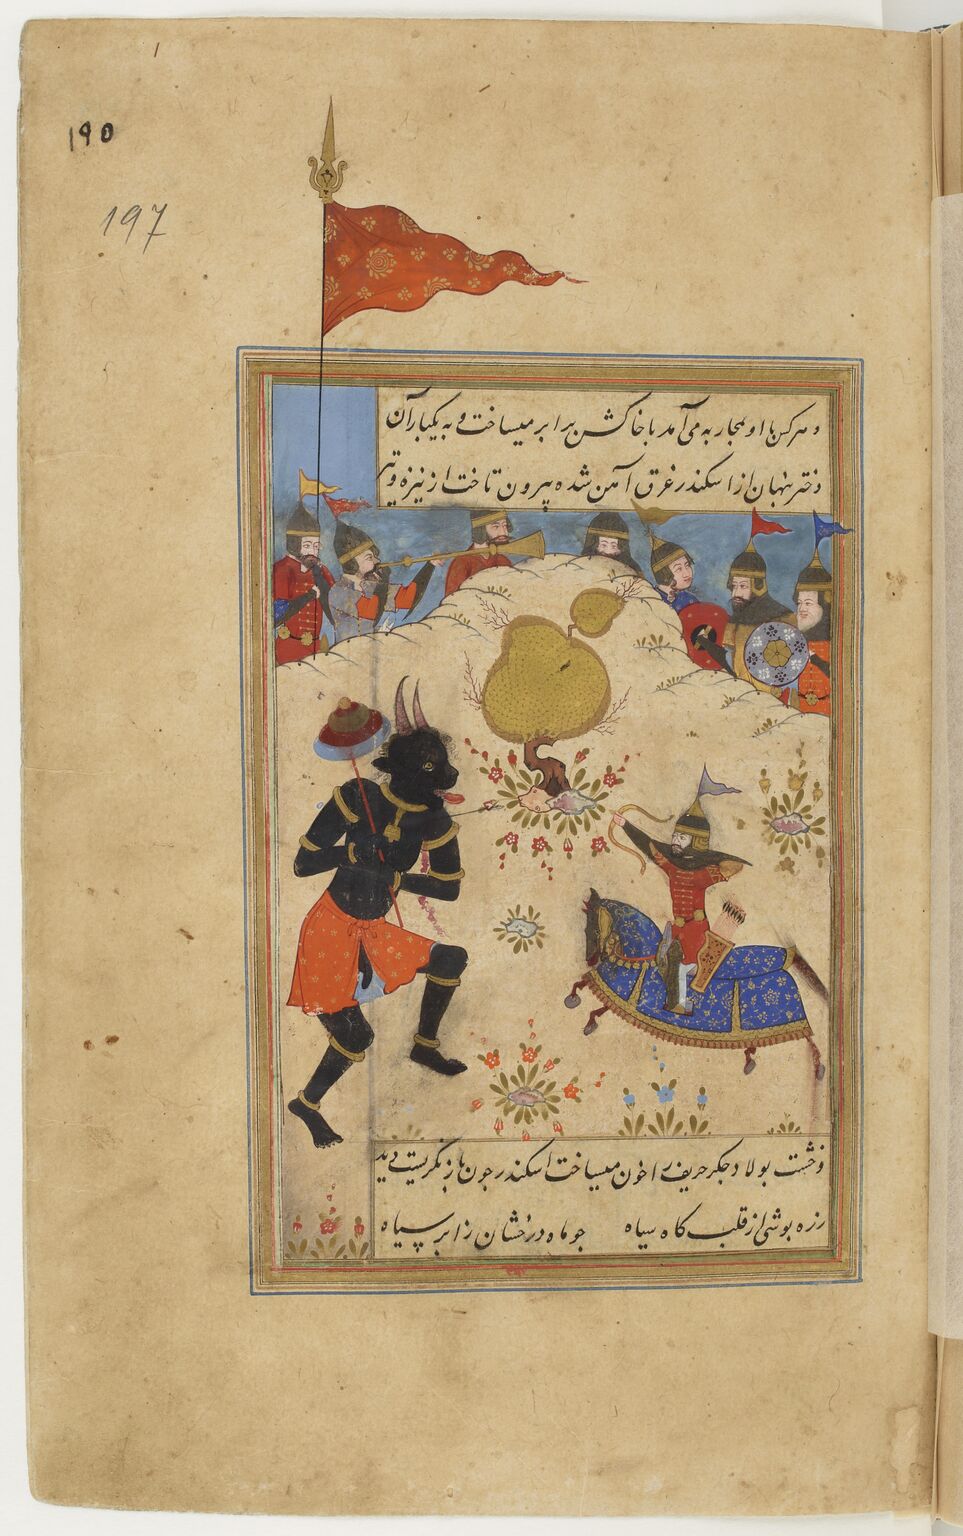 ۱۹۵
197
و هرکس با او بمحاربه می آمد با خاکش برابر میساخت و به یکبار آن
دختر پنهان از اسکندر غرق آهن شده بیرون تاخت از نیزه و تیر
و خشت بولاد جکر حریف را خون میساخت اسکندر جون باز نکریست دید
زره بوشی از قلب کاه سیاه جو ماه درخشان ز ابر سیاه